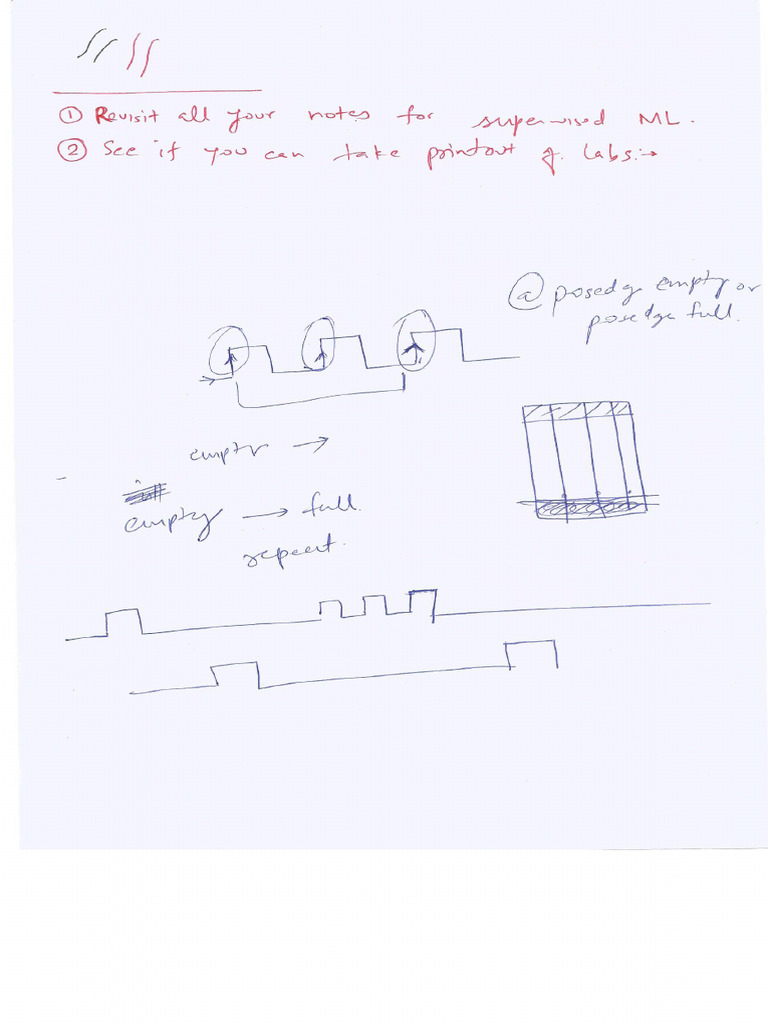 ① Revisit all your notes for supervised ML.
② See if you can take printout of labs:→
@ posedge empty or
posedge full.
empty →
empty → full.
repeat.